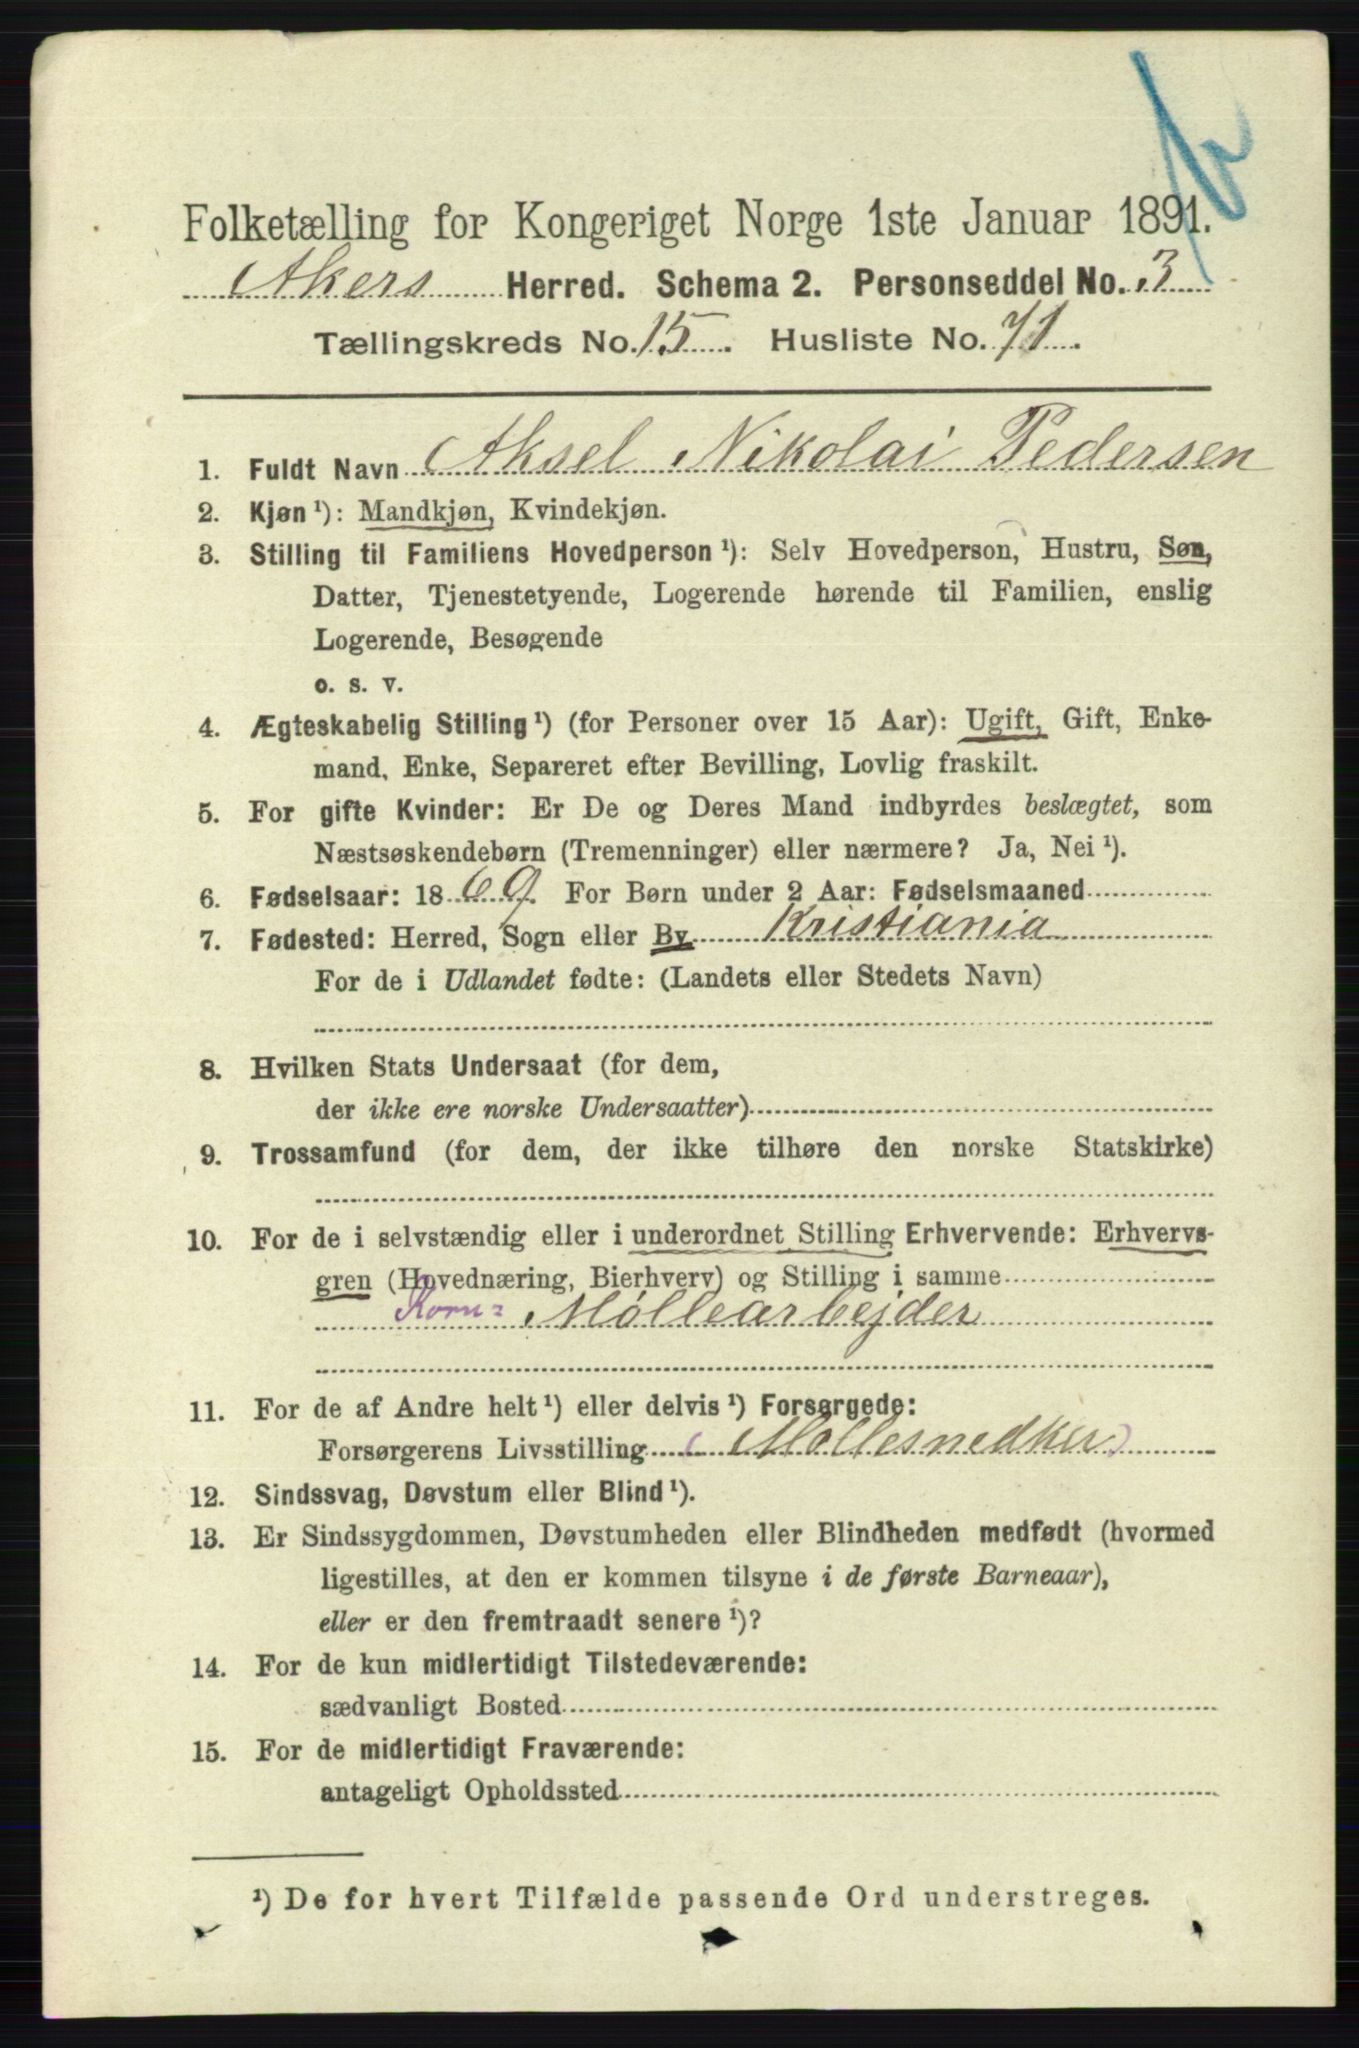 Folketælling for Kongeriget Norge 1ste Januar 1891.
Akers Herred. Schema 2. Personseddel No. 3
Tællingskreds No. 15. Husliste No. 71.
1. Fuldt Navn Aksel Nikolai Pedersen
2. Kjøn ¹): Mandkjøn, Kvindekjøn.
3. Stilling til Familiens Hovedperson ¹): Selv Hovedperson, Hustru, Søn,
Datter, Tjenestetyende, Logerende hørende til Familien, enslig
Logerende, Besøgende
o. s. v.
4. Ægteskabelig Stilling ¹) (for Personer over 15 Aar): Ugift, Gift, Enke-
mand, Enke, Separeret efter Bevilling, Lovlig fraskilt.
5. For gifte Kvinder: Er De og Deres Mand indbyrdes beslægtet, som
Næstsøskendebørn (Tremenninger) eller nærmere? Ja, Nei ¹).
6. Fødselsaar: 1869. For Børn under 2 Aar: Fødselsmaaned
7. Fødested: Herred, Sogn eller By Kristiania
For de i Udlandet fødte: (Landets eller Stedets Navn)
8. Hvilken Stats Undersaat (for dem,
der ikke ere norske Undersaatter)
9. Trossamfund (for dem, der ikke tilhøre den norske Statskirke)
10. For de i selvstændig eller i underordnet Stilling Erhvervende: Erhvervs-
gren (Hovednæring, Bierhverv) og Stilling i samme
Korn- Møllearbejder
11. For de af Andre helt ¹) eller delvis ¹) Forsørgede:
Forsørgerens Livsstilling (Møllesnedker)
12. Sindssvag, Døvstum eller Blind ¹).
13. Er Sindssygdommen, Døvstumheden eller Blindheden medfødt (hvormed
ligestilles, at den er kommen tilsyne i de første Barneaar),
eller er den fremtraadt senere ¹)?
14. For de kun midlertidigt Tilstedeværende:
sædvanligt Bosted
15. For de midlertidigt Fraværende:
antageligt Opholdssted
¹) De for hvert Tilfælde passende Ord understreges.